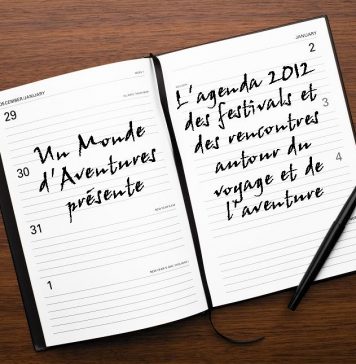 DECEMBER/JANUARY
29
Un Monde
30
d'Aventures
présente
31
1
JANUARY
2
L'agenda 2012
des festivals et
des rencontres
3
autour du
voyage et de
4
l'aventure